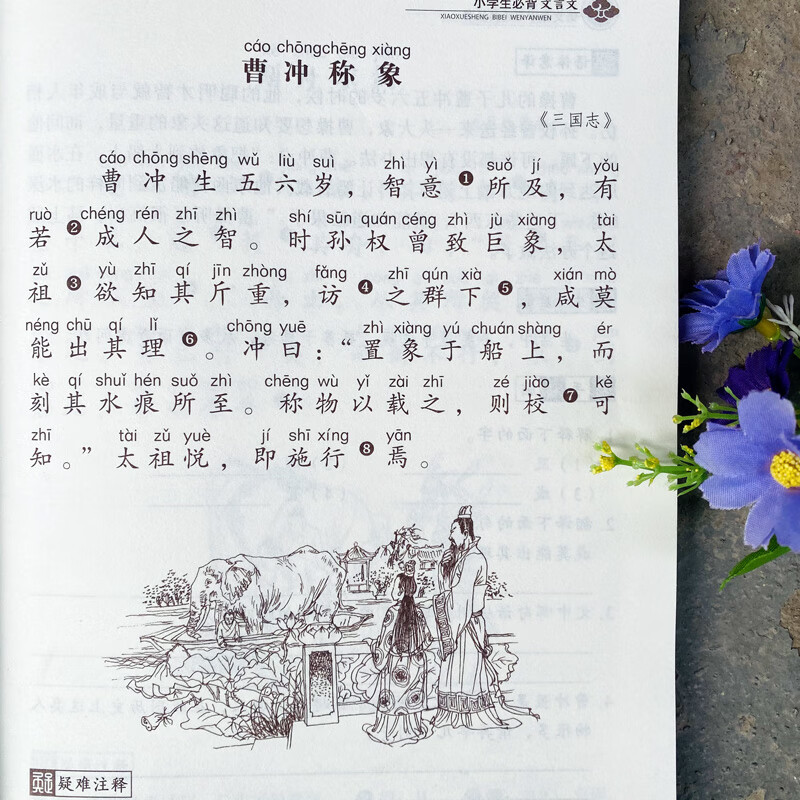 小学生必背文言文
XIAOXUESHENG BIBEI WENYANWEN
cáo chōngchēng xiàng
曹冲称象
《三国志》
cáo chōng shēng wǔ liù suì zhì yì suǒ jí yǒu
曹冲生五六岁，智意❶所及，有
ruò chéng rén zhī zhì shí sūn quán céng zhì jù xiàng tài
若❷成人之智。时孙权曾致巨象，太
zǔ yù zhī qí jīn zhòng fǎng zhī qún xià xián mò
祖❸欲知其斤重，访❹之群下❺，咸莫
néng chū qí lǐ chōng yuē zhì xiàng yú chuán shàng ér
能出其理❻。冲曰：“置象于船上，而
kè qí shuǐ hén suǒ zhì chēng wù yǐ zài zhī zé jiào kě
刻其水痕所至。称物以载之，则校❼可
zhī tài zǔ yuè jí shī xíng yān
知。”太祖悦，即施行❽焉。
疑难注释